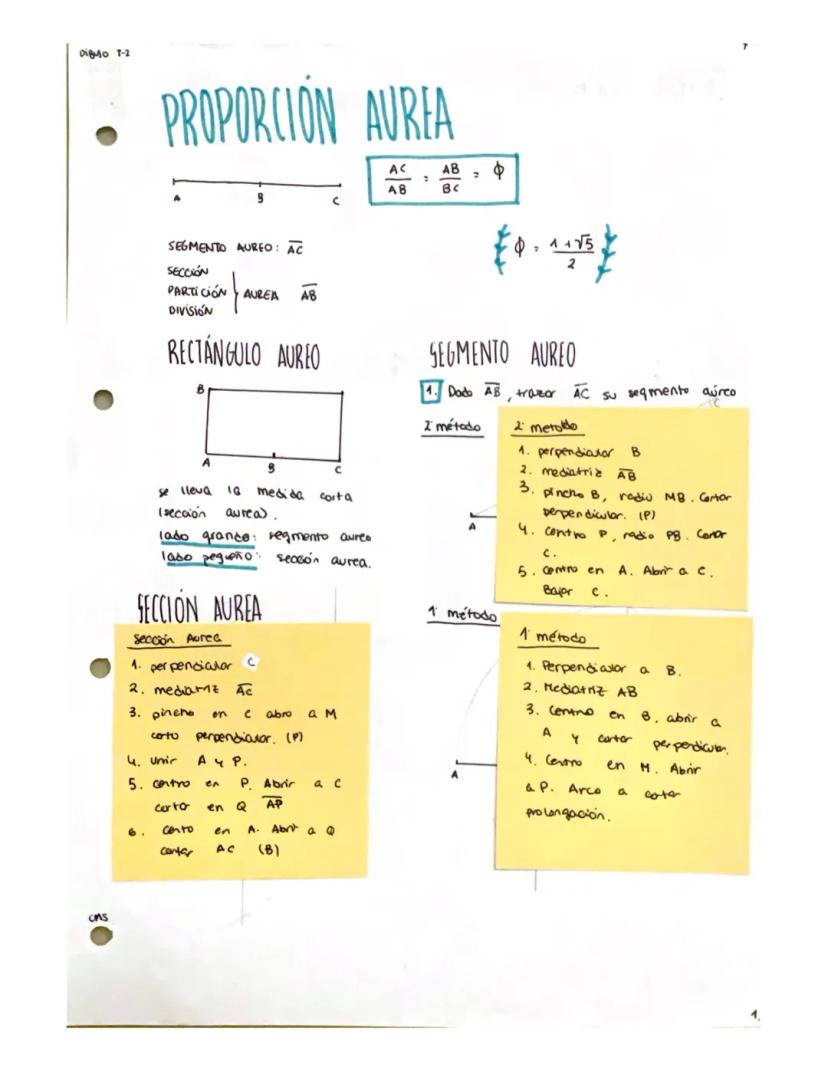 DIBUJO T-2
PROPORCIÓN AUREA
A B C
AC/AB = AB/BC = ϕ
SEGMENTO AUREO: AC
ϕ = 1+√5/2
SECCIÓN
PARTICIÓN } AUREA AB
DIVISIÓN
RECTÁNGULO AUREO
B
A B C
se lleva la medida corta
(sección aurea).
lado grande: segmento aureo
lado pequeño: sección aurea.
SECCIÓN AUREA
Sección Aurea
1. perpendicular C
2. mediatriz AC
3. pincho en C abro a M
corto perpendicular. (P)
4. Unir A y P.
5. centro en P. Abrir a C
cortar en Q AP
6. Cento en A. Abrir a Q
cortar AC (B)
CMS
SEGMENTO AUREO
1. Dado AB, trazar AC su segmento aúreo
2º método
2º metodo
1. perpendicular B
2. mediatriz AB
3. pincho B, radio MB. Cortar
perpendicular. (P)
4. Centro P, radio PB. Cortar
C.
5. centro en A. Abrir a C.
Bajar C.
A
1º método
1º método
1. Perpendicular a B.
2. Mediatriz AB
3. Centro en B, abrir a
A y cortar perpendicular.
4. Centro en M. Abrir
a P. Arco a cotar
prolongación.
A
1.